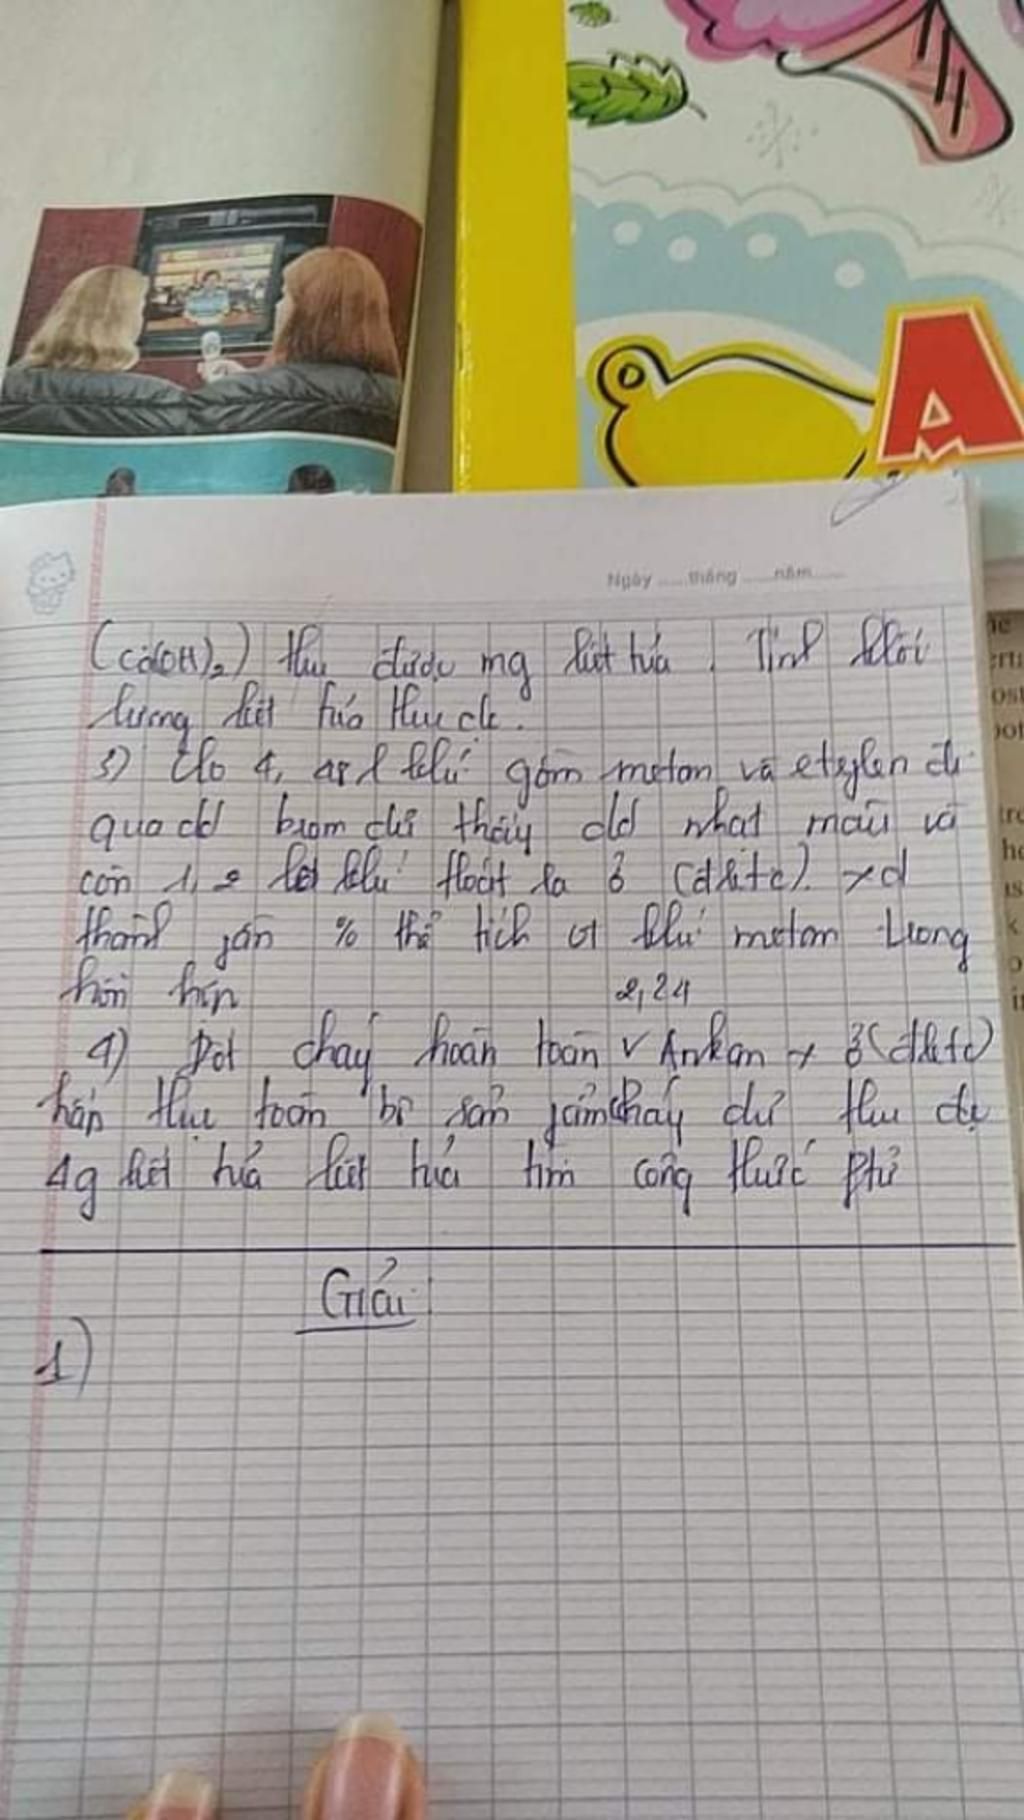 A
Ngày ..... tháng ..... năm .....
(Ca(OH)₂) thu được mg kết tủa. Tính khối
lượng kết tủa thu đc.
3) Cho 4, 48 l khí gồm metan và etylen đi
qua dd brom dư thấy dd nhạt màu và
còn 1, 2 khí thoát ra ở (đktc). xđ
thành % thể tích of khí metan trong
hỗn hợp
2,24
4) Đốt cháy hoàn toàn V Ankan ở (đktc)
hấp thu toàn bộ sản cháy dư thu đc
4g kết tủa kết tủa tìm công thức
Giải
1)